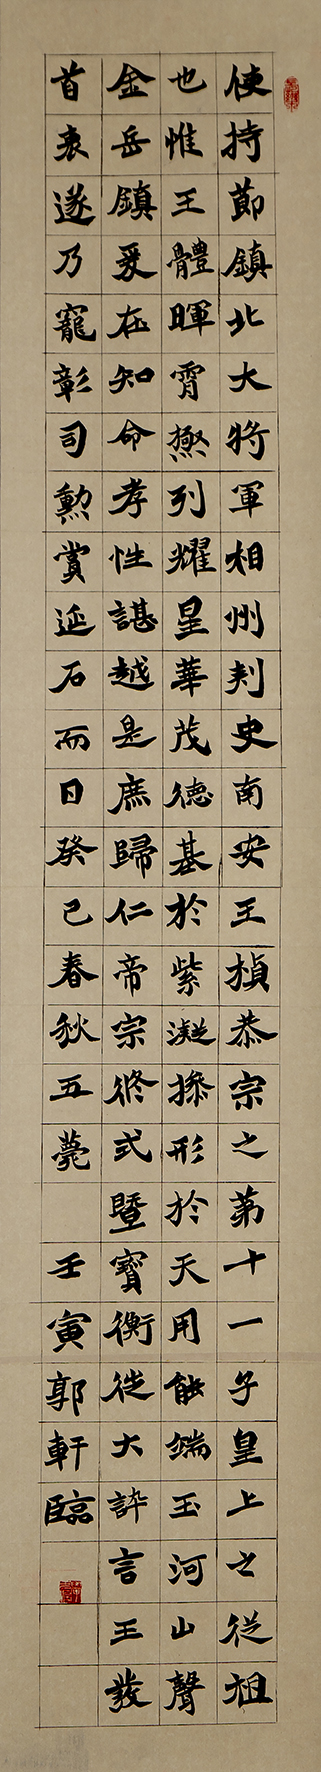 使持節鎮北大將軍相州刺史南安王楨恭宗之第十一子皇上之從祖
也惟王體暉霄極列耀星華茂德基於紫凝操形於天用能端玉河山聲
金岳鎮爰在知命孝性諶越是庶歸仁帝宗攸式暨寶衡從大訊言王發
首衷遂乃寵彰司勳賞延石而日癸巳春秋五薨 壬寅郭軒臨